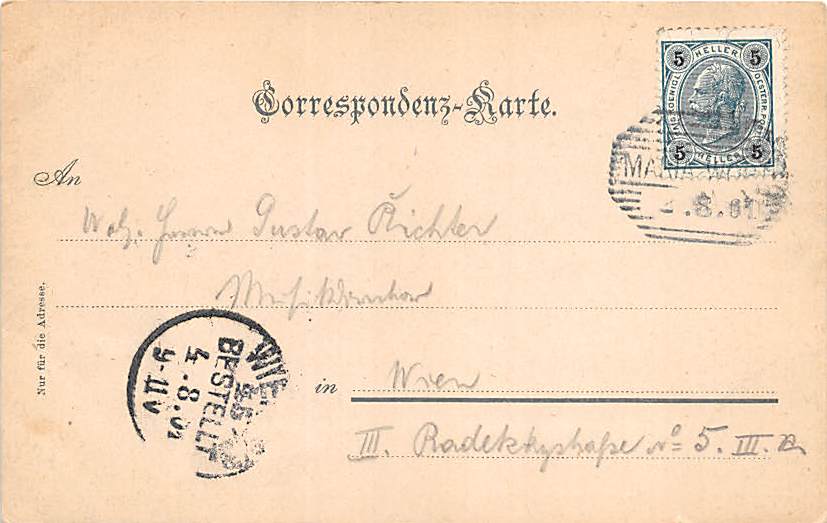 5 HELLER 5
KAIS. KOENIGL. OESTERR. POST
5 HELLER 5
Correspondenz-Karte.
MARIA
.8.01
An
Wolg. Herrn Gustav Richter
Musikdirektor
Nur für die Adresse.
WIE
BESTELLT
4.8.01
9-11V
in Wien
III. Radetzkystraße No 5. III.